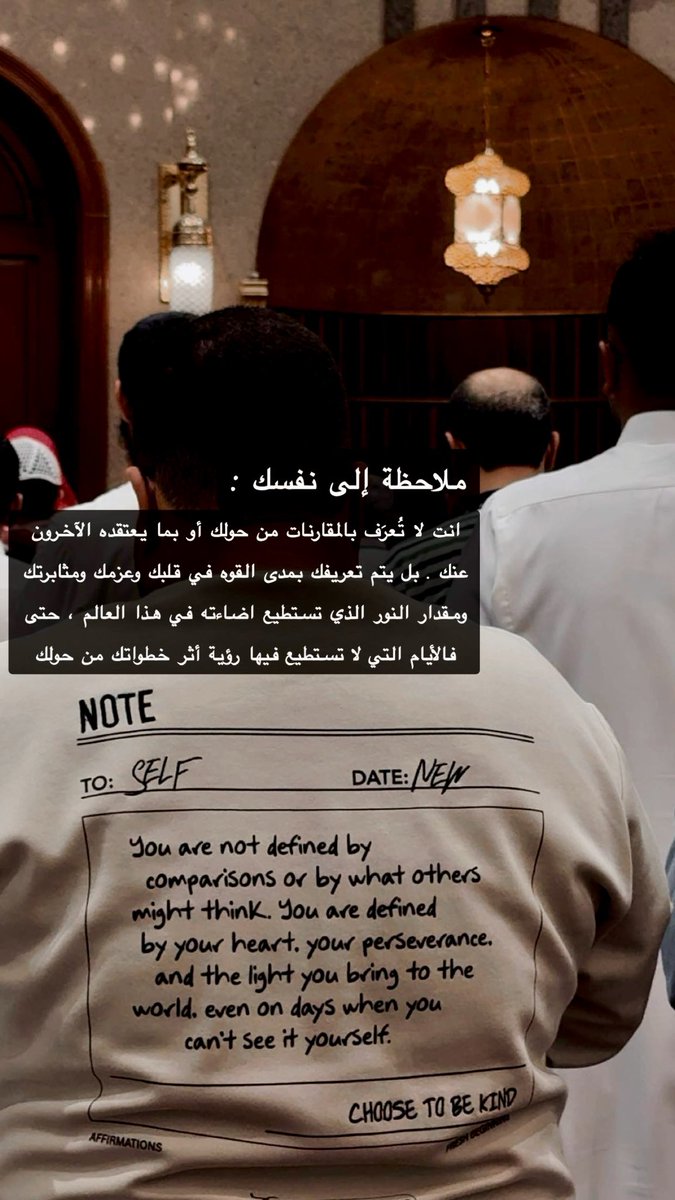 ملاحظة إلى نفسك :
انت لا تُعرَف بالمقارنات من حولك أو بما يعتقده الآخرون
عنك . بل يتم تعريفك بمدى القوه في قلبك وعزمك ومثابرتك
ومقدار النور الذي تستطيع اضاءته في هذا العالم ، حتى
فالأيام التي لا تستطيع فيها رؤية أثر خطواتك من حولك
NOTE
TO: SELF DATE: NEW
You are not defined by
comparisons or by what others
might think. You are defined
by your heart. your perseverance.
and the light you bring to the
world. even on days when you
can't see it yourself.
CHOOSE TO BE KIND
AFFIRMATIONS